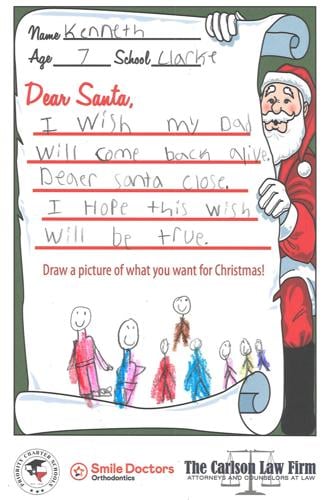 Name Kenneth
Age 7 School Clarke
Dear Santa,
I Wish my Dad
Will come back alive.
Deaer santa close.
I Hope this wish
Will be true.
Draw a picture of what you want for Christmas!
PRIORITY CHARTER SCHOOLS
Smile Doctors
Orthodontics
The Carlson Law Firm
ATTORNEYS AND COUNSELORS AT LAW